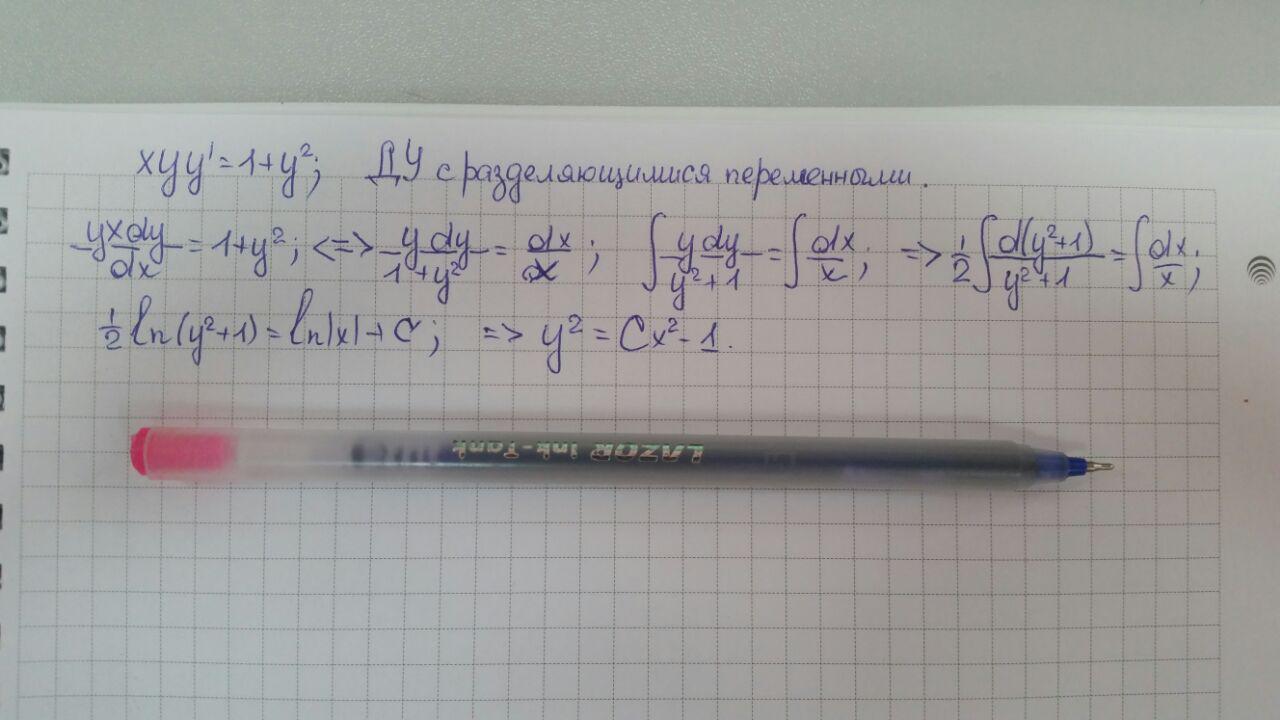 xyy' = 1+y²; ДУ с разделяющимися переменными.
yxdy/dx = 1+y²; <=> ydy/1+y² = dx/x; ∫ydy/y²+1 = ∫dx/x; => 1/2∫d(y²+1)/y²+1 = ∫dx/x;
1/2 ln(y²+1) = ln|x| + C; => y² = Cx² - 1.
LAZOR ink-Tank